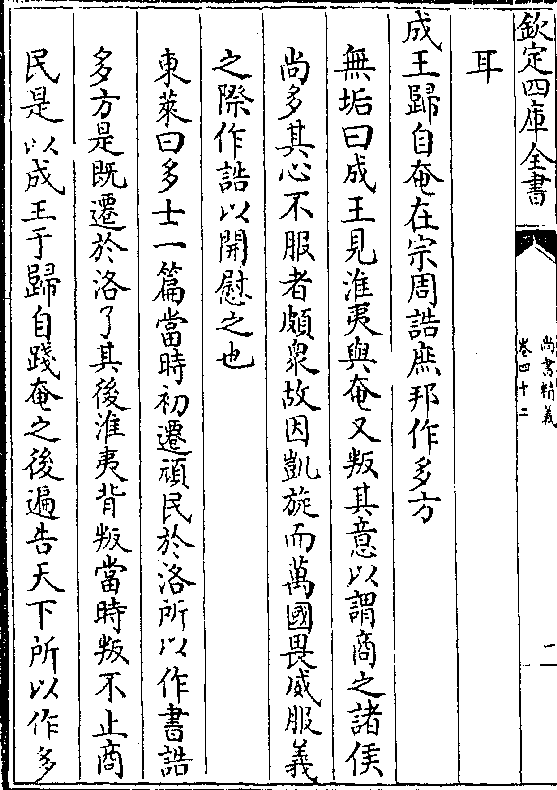 欽定四庫全書
尚書精義
卷四十二
二
耳
成王歸自奄在宗周誥庶邦作多方
無垢曰成王見淮夷與奄又叛其意以謂商之諸侯
尚多其心不服者頗衆故因凱旋而萬國畏威服義
之際作誥以開慰之也
東萊曰多士一篇當時初遷頑民於洛所以作書誥
多方是既遷於洛了其後淮夷背叛當時叛不止商
民是以成王于歸自踐奄之後遍告天下所以作多